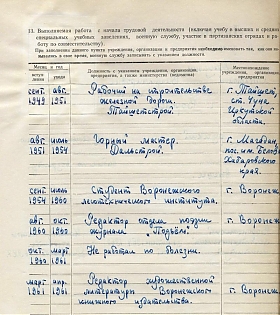 11. Выполняемая работа с начала трудовой деятельности (включая учебу в высших и средних
специальных учебных заведениях, военную службу, участие в партизанских отрядах и ра-
боту по совместительству):
При заполнении данного пункта учреждения, организации и предприятия необходимо
Месяц и год
вступ-
ления
ухода
Должность с указанием учреждения, организации,
предприятия, а также министерства (ведомства)
Местонахождение
учреждения, организации,
предприятия
сент.
1949
авг.
1951
Рабочий на строительстве
железной дороги.
Тайшетстрой.
г. Тайшет,
ст. Чуна
Иркутской
области.
авг.
1951
июль
1954
Горный мастер.
Дальстрой.
г. Магадан,
пос. им. Белова
Хабаровского
края.
сент.
1954
июль
1960
Студент Воронежского
лесотехнического института.
г. Воронеж
авг.
1960
окт.
1960
Редактор отдела поэзии
журнала "Подъём".
г. Воронеж
окт.
1960
март
1961
Не работал по болезни.
март
1961
апр.
1961
Редактор художественной
литературы Воронежского
книжного издательства.
г. Воронеж